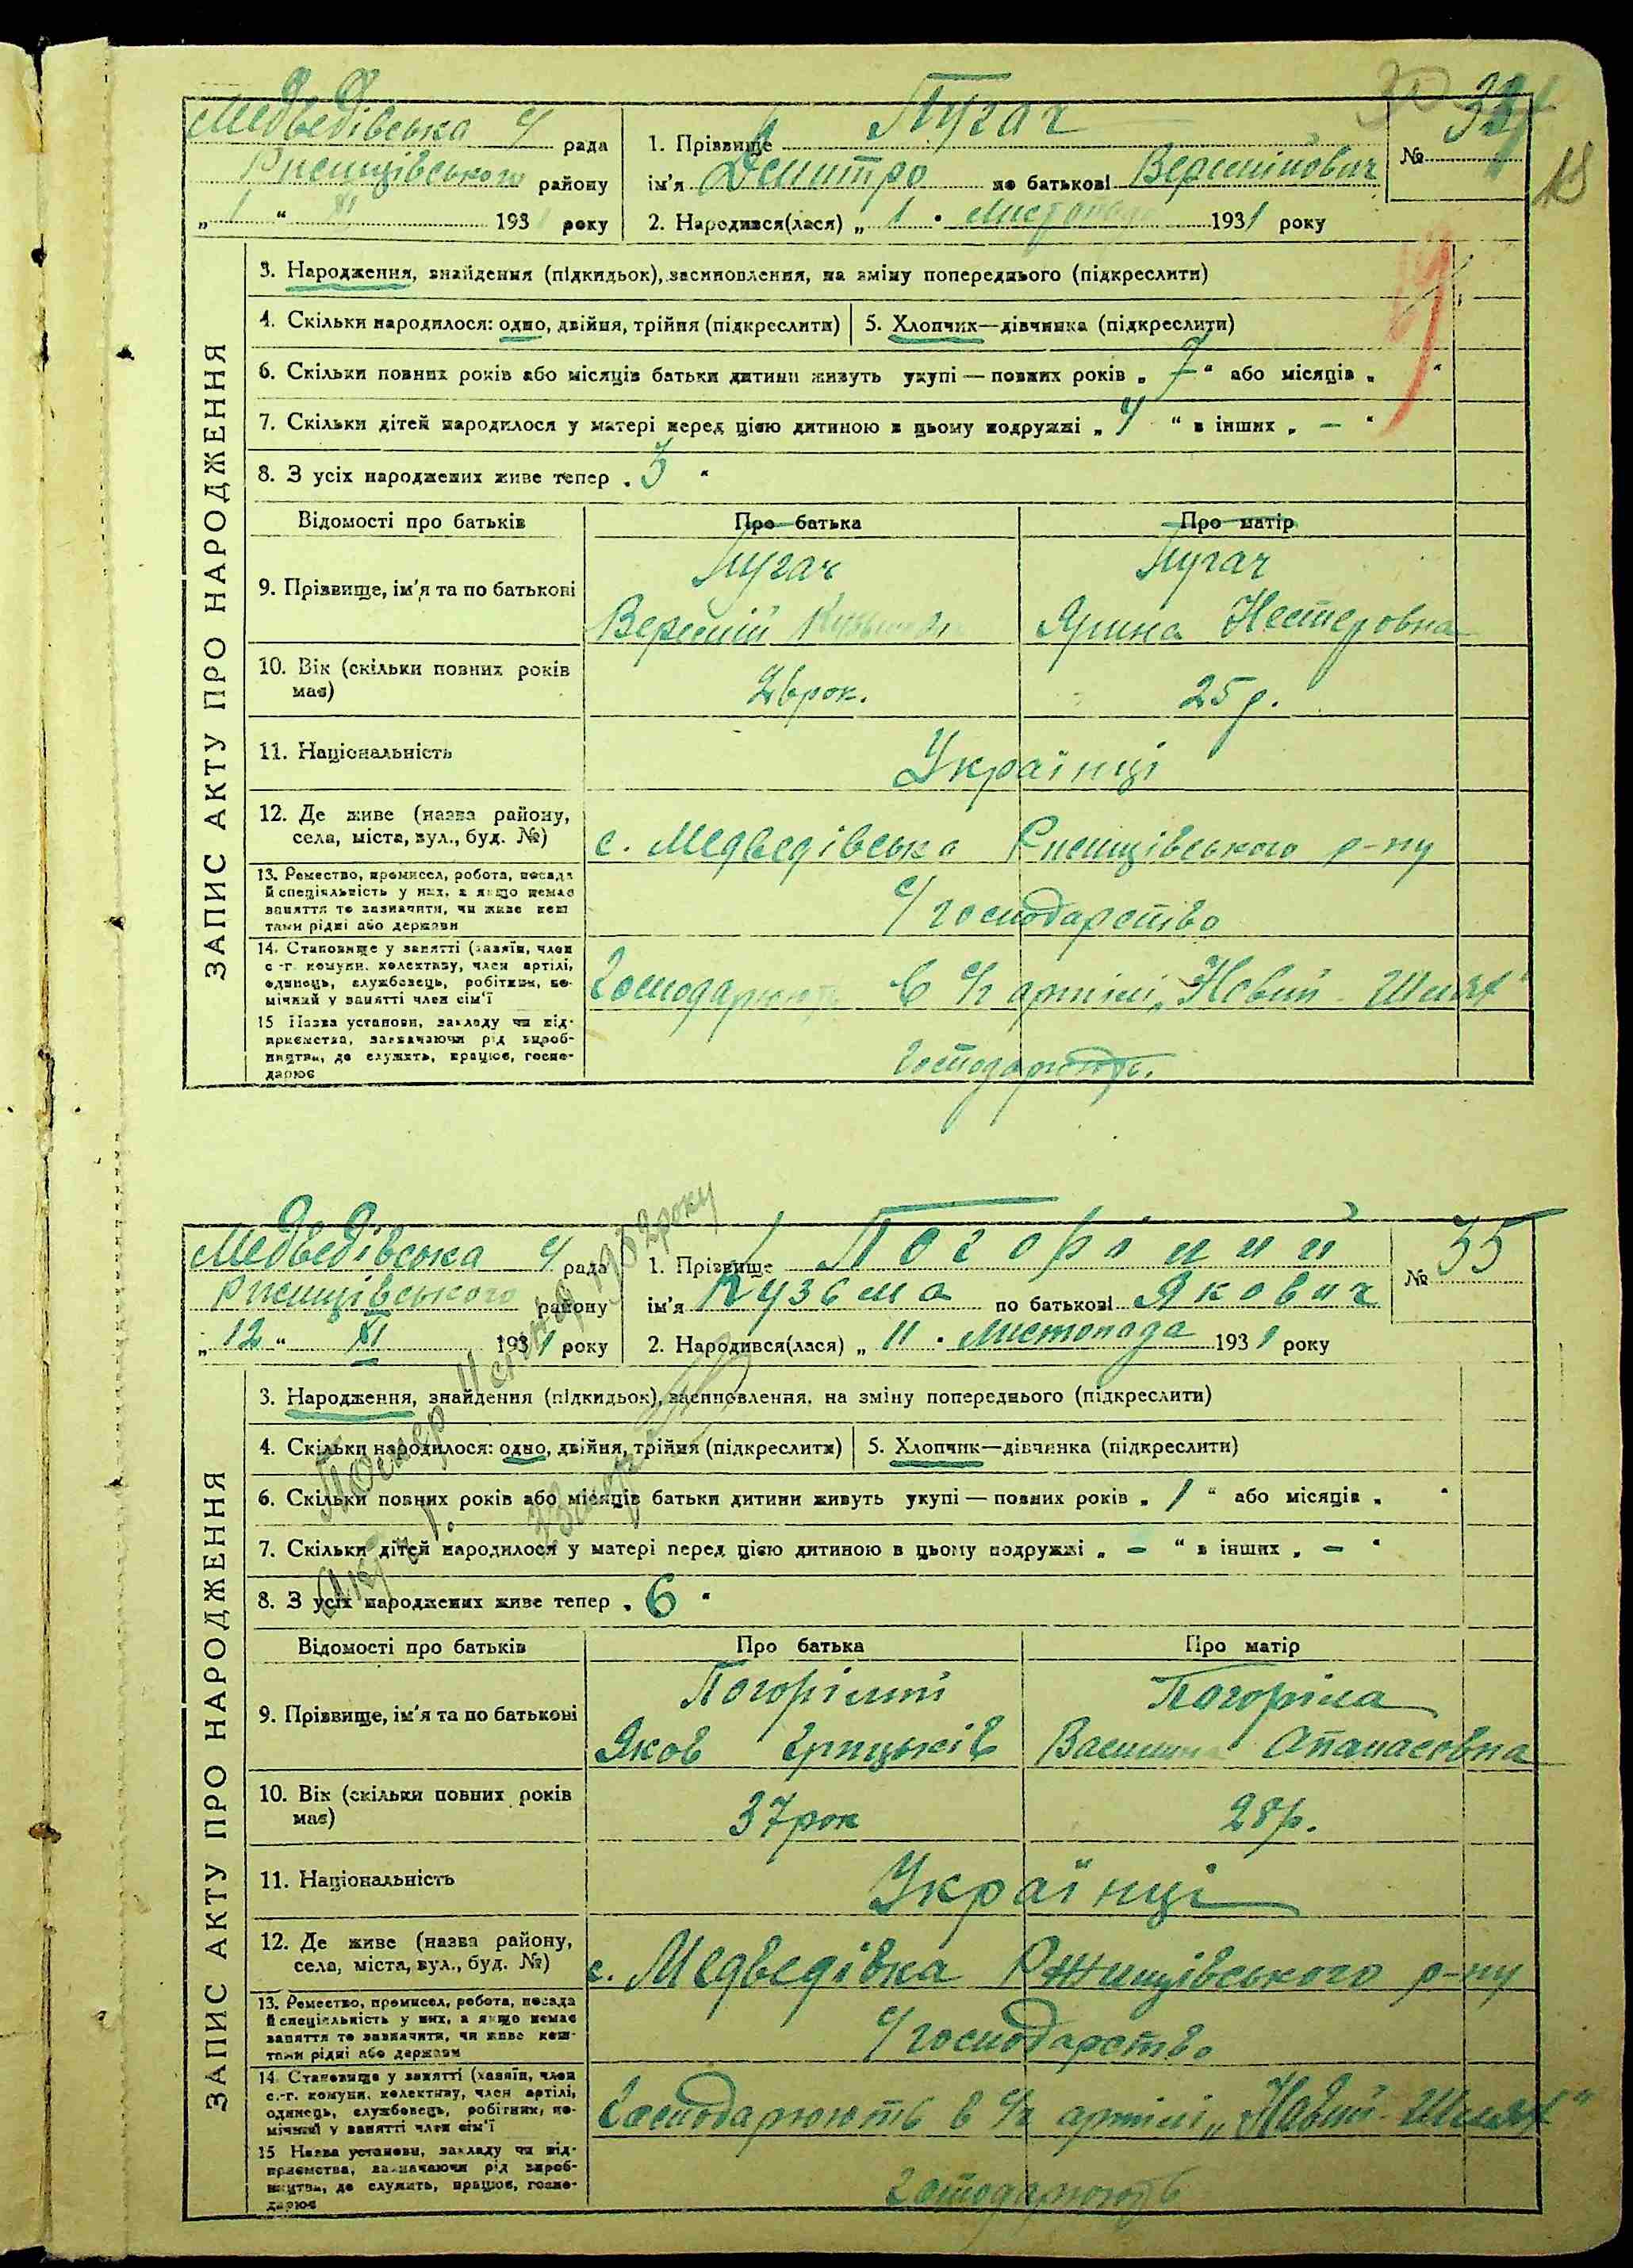 30 34
18
Медведівська с/ рада
Ржищівського району
„ 1 “ XI 1931 року
1. Прізвище Пугач
ім'я Дмитро по батькові
№
2. Народився(лася) „ 1 “ Листопада 1931 року
ЗАПИС АКТУ ПРО НАРОДЖЕННЯ
3. Народження, знайдення (підкидьок), засиновлення, на зміну попереднього (підкреслити)
4. Скільки народилося: одно, двійня, трійня (підкреслити)
5. Хлопчик—дівчинка (підкреслити)
6. Скільки повних років або місяців батьки дитини живуть укупі — повних років „ 7 “ або місяців „ “
7. Скільки дітей народилося у матері перед цією дитиною в цьому подружжі „ 4 “ в інших „ – “
8. З усіх народжених живе тепер „ 3 “
Відомості про батьків
Про батька
Про матір
9. Прізвище, ім'я та по батькові
Пугач
Пугач
Ярина Нестеровна
10. Вік (скільки повних років
має)
26 рок.
25 р.
11. Національність
Українці
12. Де живе (назва району,
села, міста, вул., буд. №)
с. Медведівська Ржищівського р-ну
13. Ремество, промисел, робота, посада
й спеціяльність у них, а якщо немає
заняття то зазначити, чи живе кош-
тами рідні або держави
с/господарство
14. Становище у занятті (хазяїн, член
с.-г. комуни, колективу, член артілі,
одинець, службовець, робітник, по-
мічний у занятті член сім'ї
Господарюють в с/г артілі „Новий Шлях“
15 Назва установи, закладу чи під-
приємства, зазначаючи рід вироб-
ництва, де служить, працює, госпо-
дарює
господарюють.
Медведівська с/ рада
Ржищівського району
„ 12 “ XI 1931 року
1. Прізвище Погорілий
ім'я Кузьма по батькові Якович
№ 35
2. Народився(лася) „ 11 “ Листопада 1931 року
Помер 4 січня 1932 року
Акт 1.
ЗАПИС АКТУ ПРО НАРОДЖЕННЯ
3. Народження, знайдення (підкидьок), засиновлення, на зміну попереднього (підкреслити)
4. Скільки народилося: одно, двійня, трійня (підкреслити)
5. Хлопчик—дівчинка (підкреслити)
6. Скільки повних років або місяців батьки дитини живуть укупі — повних років „ 1 “ або місяців „ “
7. Скільки дітей народилося у матері перед цією дитиною в цьому подружжі „ – “ в інших „ – “
8. З усіх народжених живе тепер „ 6 “
Відомості про батьків
Про батька
Про матір
9. Прізвище, ім'я та по батькові
Погорілий
Яков Грицьків
Погоріла
Апанасовна
10. Вік (скільки повних років
має)
37 рок
28 р.
11. Національність
Українці
12. Де живе (назва району,
села, міста, вул., буд. №)
с. Медведівка Ржищівського р-ну
13. Ремество, промисел, робота, посада
й спеціяльність у них, а якщо немає
заняття то зазначити, чи живе кош-
тами рідні або держави
с/господарство
14. Становище у занятті (хазяїн, член
с.-г. комуни, колективу, член артілі,
одинець, службовець, робітник, по-
мічний у занятті член сім'ї
Господарюють в с/г артілі „Новий Шлях“
15 Назва установи, закладу чи під-
приємства, зазначаючи рід вироб-
ництва, де служить, працює, госпо-
дарює
господарюють